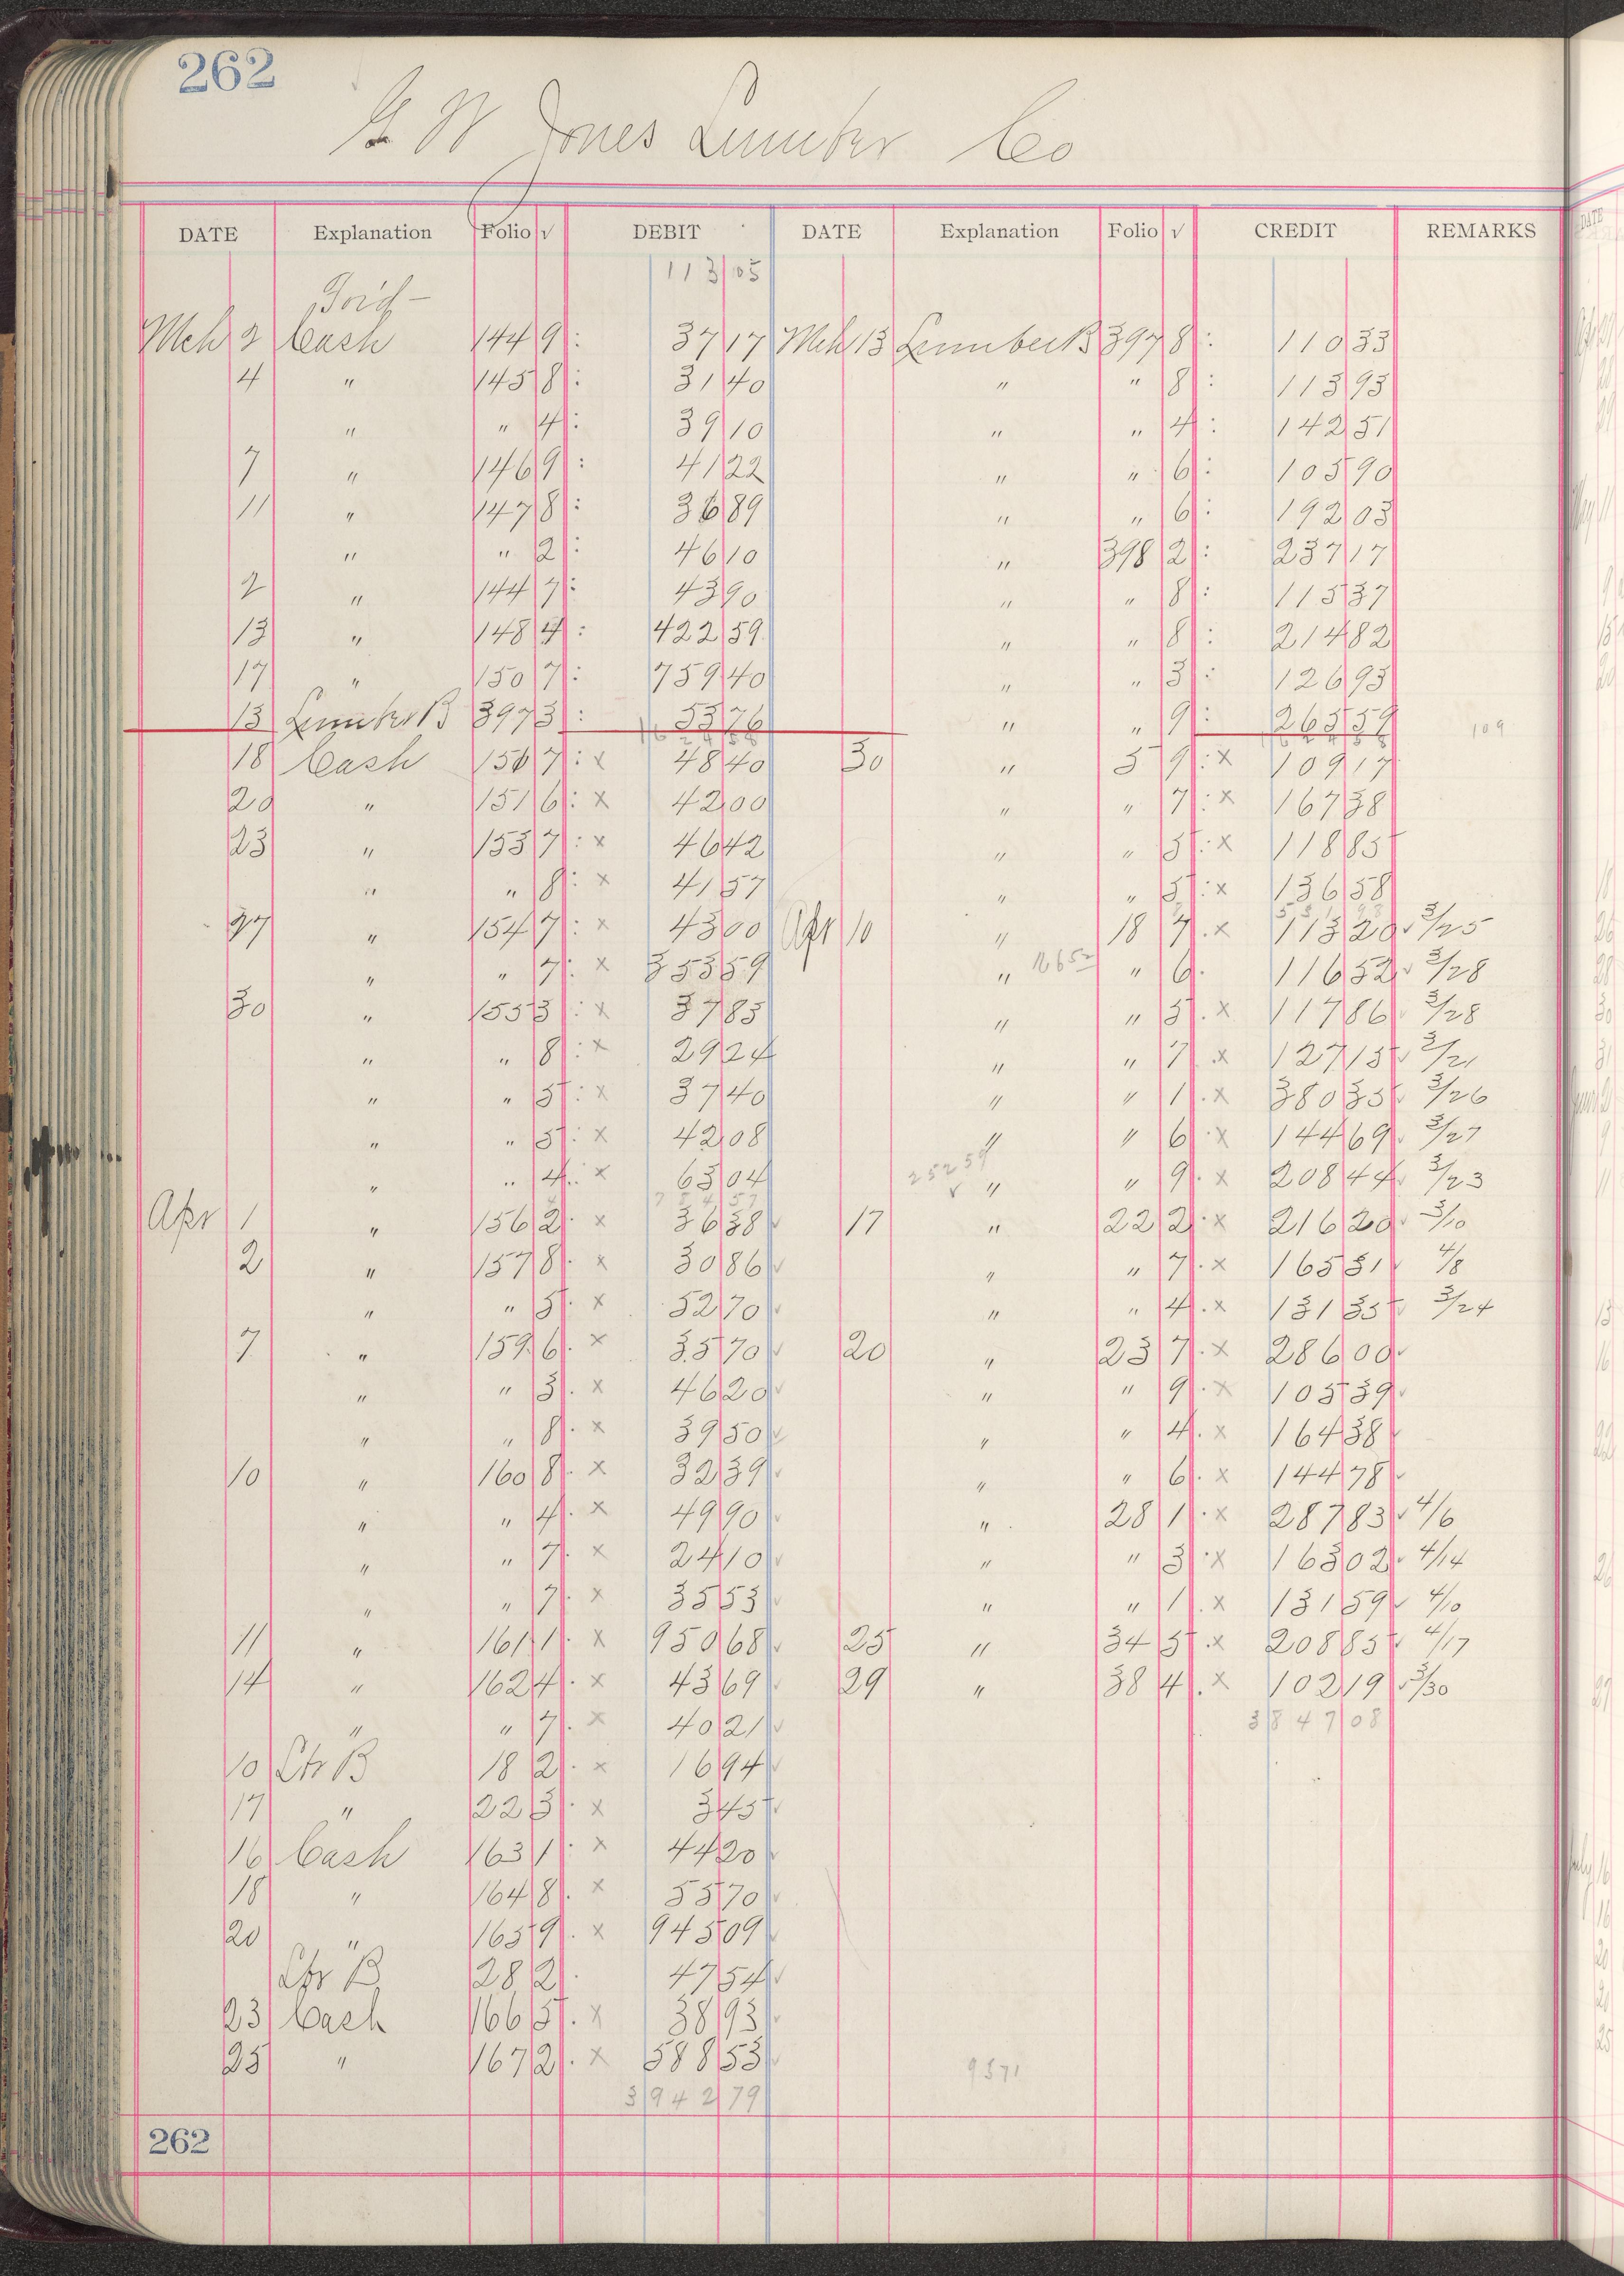 262
G W Jones Lumber Co
DATE Explanation Folio √ DEBIT DATE Explanation Folio √ CREDIT REMARKS
113 05
For'd —
Mch 2 Cash 144 9 : 37 17 Mch 13 Lumber B 397 8 : 110 33
4 " 145 8 : 31 40 " " 8 : 113 93
" " 4 : 39 10 " " 4 : 142 51
7 " 146 9 : 41 22 " " 6 : 105 90
11 " 147 8 : 36 89 " " 6 : 192 03
" " 2 : 46 10 " 398 2 : 237 17
2 " 144 7 : 43 90 " " 8 : 115 37
13 " 148 4 : 422 59 " " 8 : 214 82
17 " 150 7 : 759 40 " " 3 : 126 93
13 Lumber B 397 3 : 53 76 " " 9 : 265 59 109
18 Cash 150 7 : x 48 40 30 " 5 9 : x 109 17
20 " 151 6 : x 42 00 " " 7 : x 167 38
23 " 153 7 : x 46 42 " " 5 : x 118 85
" " 8 : x 41 57 " " 5 : x 136 58
27 " 154 7 : x 43 00 Apr 10 " 18 7 . x 113 20 √ 3/25
" " 7 : x 353 59 " " 6 . 116 52 √ 3/28
30 " 155 3 : x 37 85 " " 5 . x 117 86 √ 3/28
" " 8 : x 29 24 " " 7 . x 127 15 √ 3/21
" " 5 : x 37 40 " " 1 . x 380 35 √ 3/26
" " 5 : x 42 08 " " 6 . x 144 69 √ 3/27
" " 4 : x 63 04 252 59 √ " " 9 . x 208 44 √ 3/23
Apr 1 " 156 2 . x 36 38 √ 17 " 22 2 . x 216 20 √ 3/10
2 " 157 8 . x 30 86 √ " " 7 . x 165 31 √ 4/8
" " 5 . x 52 70 √ " " 4 . x 131 35 √ 3/24
7 " 159 6 . x 35 70 √ 20 " 23 7 . x 286 00 √
" " 3 . x 46 20 √ " " 9 . x 105 39 √
" " 8 . x 39 50 √ " " 4 . x 164 38 √
10 " 160 8 . x 32 39 √ " " 6 . x 144 78 √
" " 4 . x 49 90 √ " 28 1 . x 287 83 √ 4/6
" " 7 . x 24 10 √ " " 3 . x 163 02 √ 4/14
" " 7 . x 35 53 √ " " 1 . x 131 59 √ 4/10
11 " 161 1 . x 950 68 √ 25 " 34 5 . x 208 85 √ 4/17
14 " 162 4 . x 43 69 √ 29 " 38 4 . x 102 19 √ 3/30
" " 7 . x 40 21 √ 3847 08
10 Lbr B 18 2 . x 16 94 √
17 " 22 3 . x 3 45 √
16 Cash 163 1 . x 44 20 √
18 " 164 8 . x 55 70 √
20 " 165 9 . x 945 09 √
Lbr B 28 2 . 47 54 √
23 Cash 166 5 . x 38 93 √
25 " 167 2 . x 588 53 √ 9571
3942 79
262